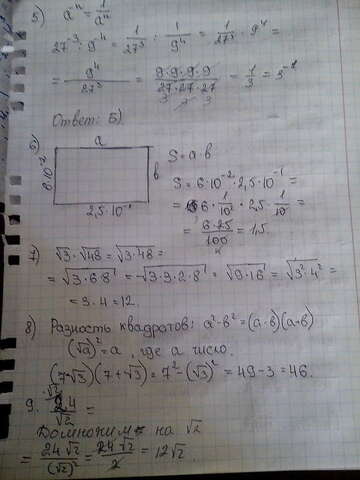 5) a⁻ⁿ = 1/aⁿ
27⁻³ : 9⁻⁴ = 1/27³ : 1/9⁴ = 1/27³ · 9⁴ =
= 9⁴/27³ = 9·9·9·9/27·27·27 = 1/3 = 3⁻¹
3 3 3
Ответ: Б)
6)
a
6·10⁻²
в
2,5·10⁻¹
S = a·в
S = 6·10⁻² · 2,5·10⁻¹ =
= 6·1/10² · 2,5·1/10 =
= 6·25/100 = 1,5.
7) √3 · √48 = √3·48 =
= √3·6·8 = √3·3·2·8 = √9·16 = √3²·4² =
= 3·4 = 12.
8) Разность квадратов: a²-в² = (a-в)(a+в)
(√a)² = a, где a число.
(7-√3)(7+√3) = 7² - (√3)² = 49-3 = 46.
9. ·√2 24/√2 =
Домножим на √2
= 24√2/(√2)² = 24√2/2 = 12√2.